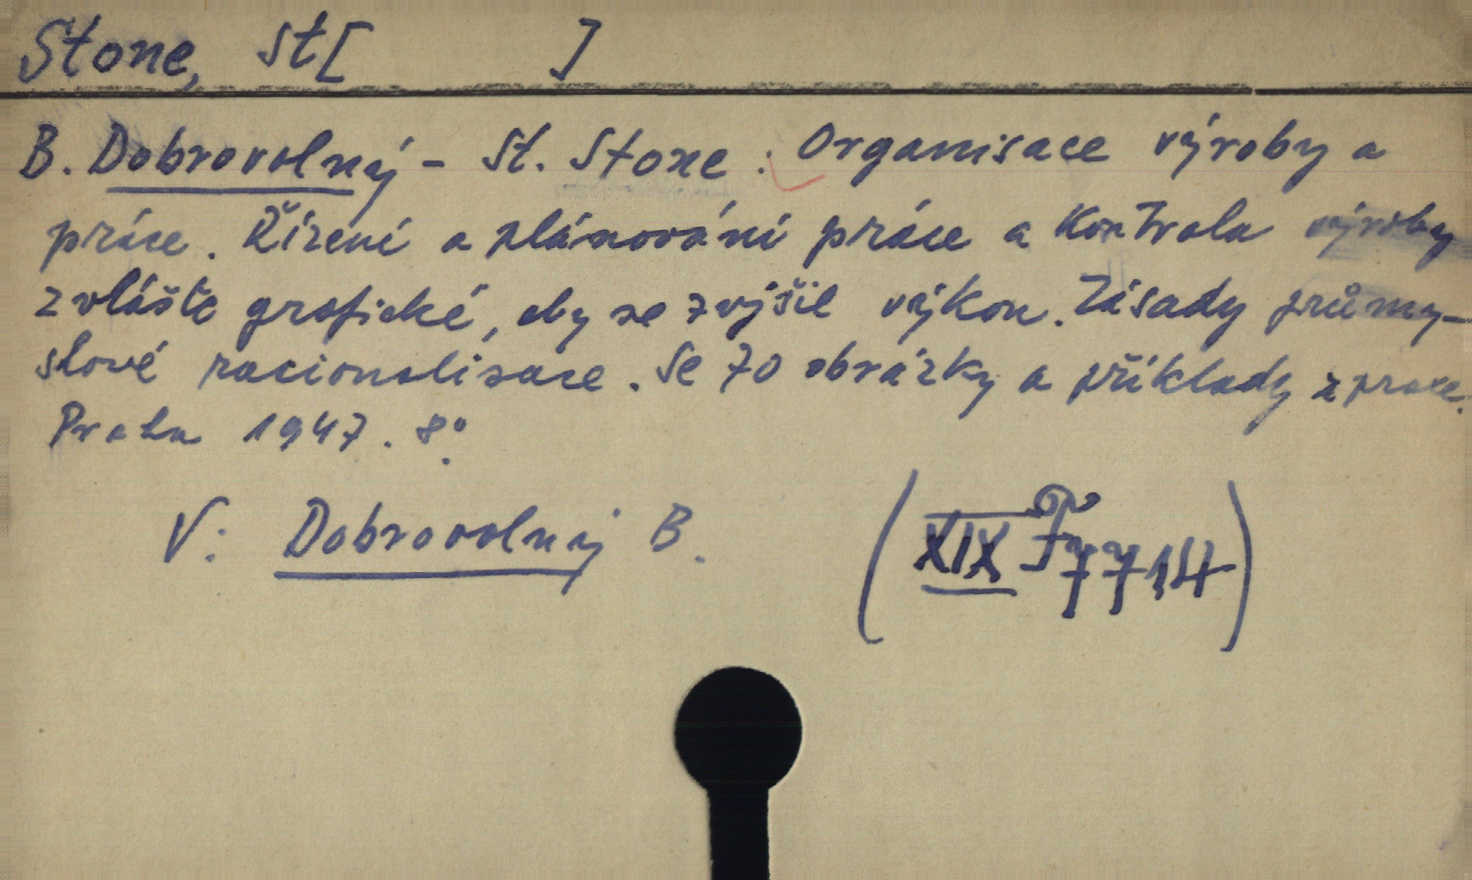 Stone, St[ ]
B. Dobrovolný - St. Stone: Organisace výroby a
práce. Řízení a plánování práce a kontrola výroby
zvláště grafické, aby se zvýšil výkon. Zásady průmy-
slové racionalisace. Se 70 obrázky a příklady z praxe.
Praha 1947. 8°.
V: Dobrovolný B.
(XIX F 7714)